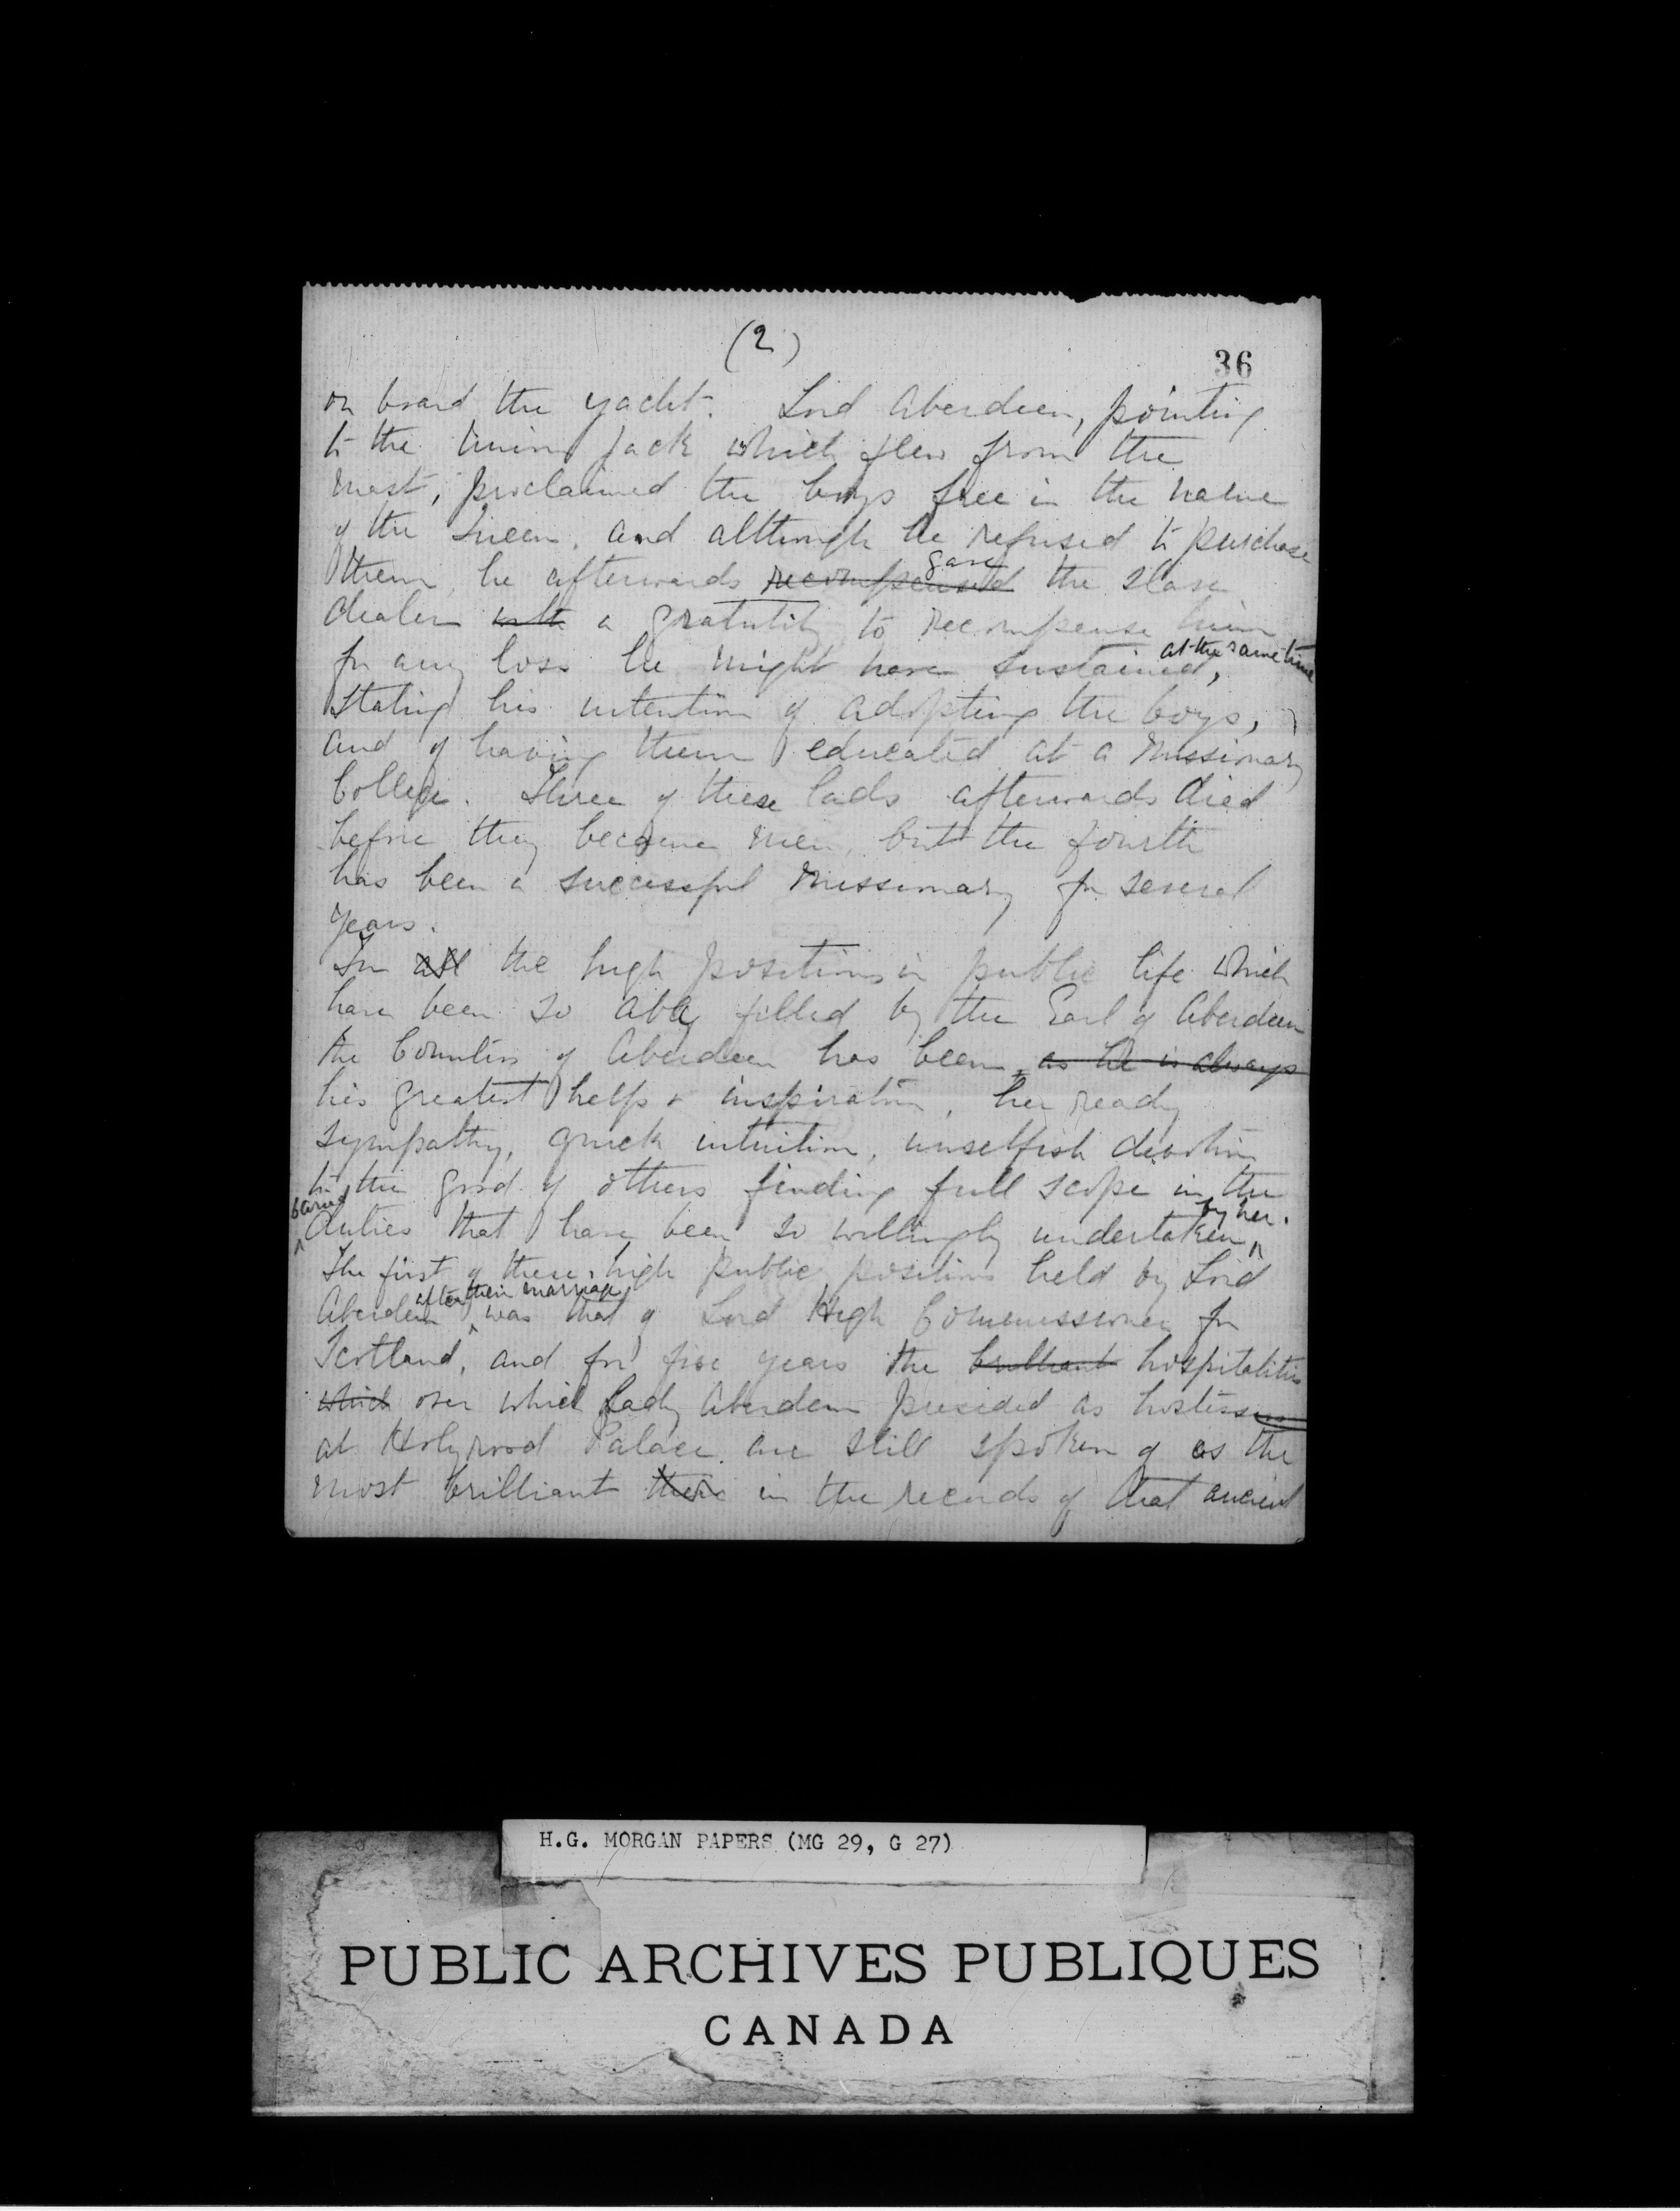 (2)
36
on board the yacht. Lord Aberdeen, pointing
to the Union Jack which flew from the
mast, proclaimed the boys free in the name
of the Queen, and although he refused to purchase
them, he afterwards recompensed gave the slave
dealer with a gratutity to recompense him
for any loss he might have sustained, at the same time
Stating his intention of adopting the boys,
and of having them educated at a Missionary
College. Three of these lads afterwards died
before they became men, but the fourth
has been a successful Missionary for several
years.
In all the high positions in public life which
have been so ably filled by the Earl of Aberdeen
the Countess of Aberdeen has been, as she is always
his greatest help & inspiration, her ready
sympathy, quick intuition, unselfish devotion
to the good of others finding full scope in the
varied duties that have been so willingly undertaken by her.
The first of these high public positions held by Lord
Aberdeen after their marriage was that of Lord High Commissioner for
Scotland, and for five years the brilliant hospitalities
which over which Lady Aberdeen presided as hostess
at Holyrood Palace are still spoken of as the
most brilliant in the records of that ancient
H.G. MORGAN PAPERS (MG 29, G 27)
PUBLIC ARCHIVES PUBLIQUES
CANADA